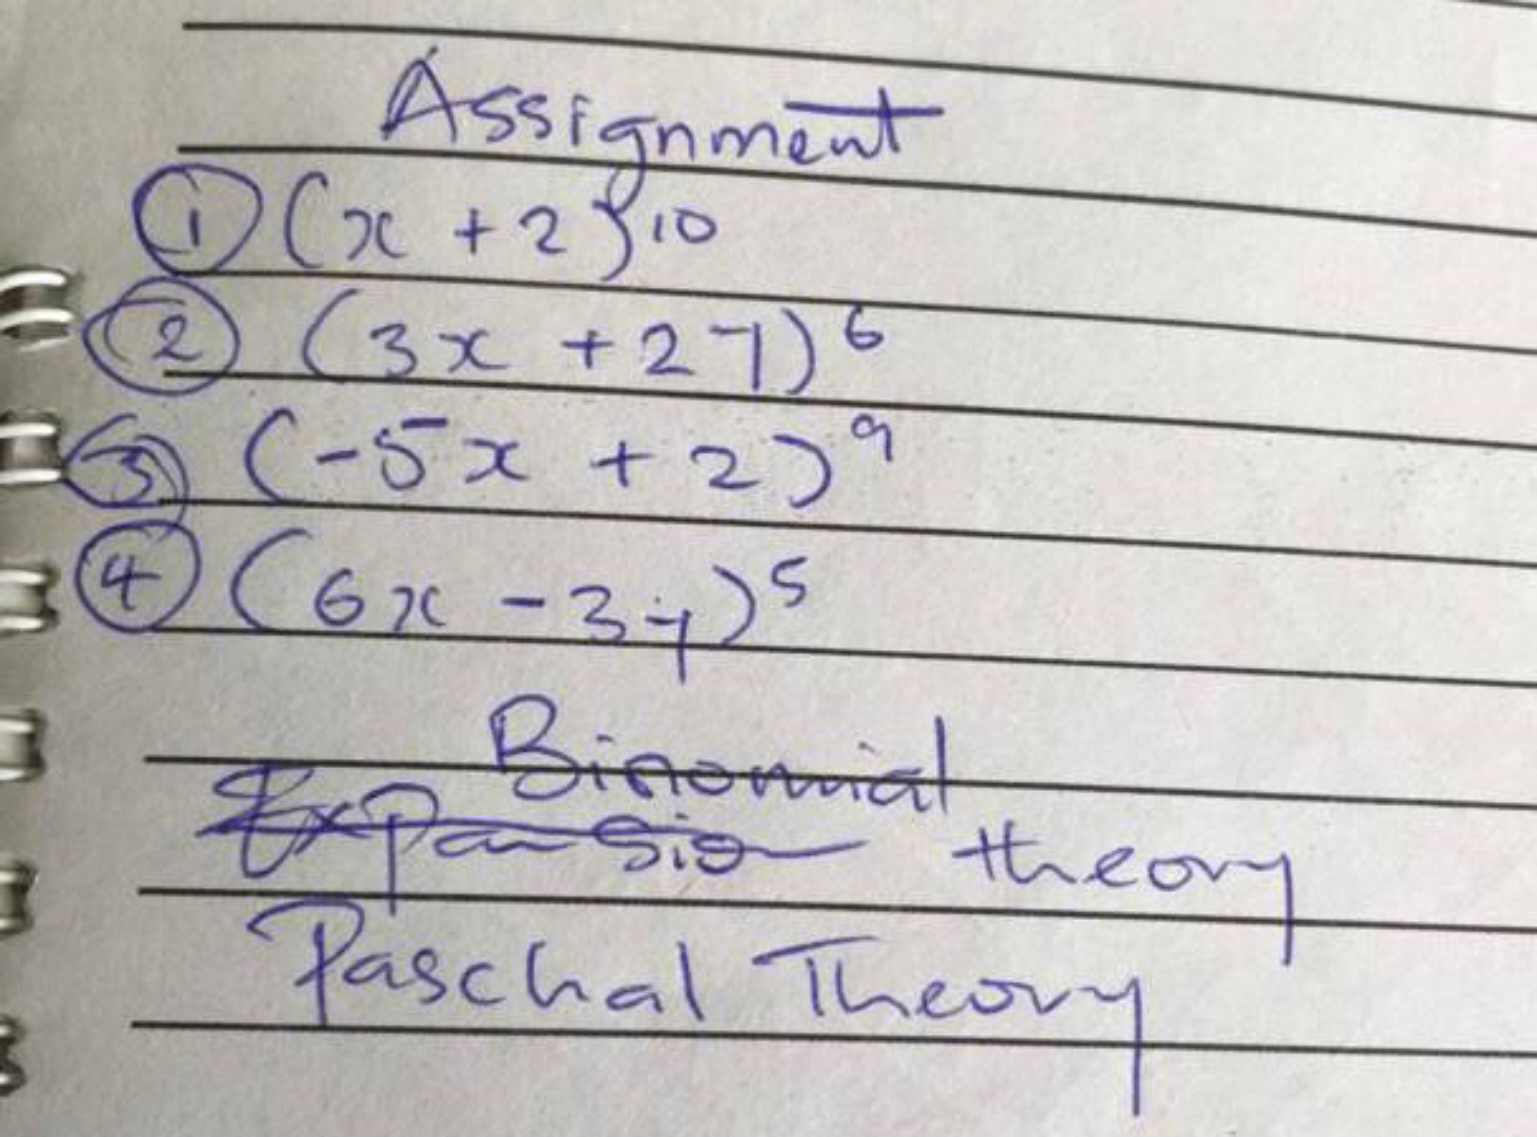 Assignment
① (x + 2)10
② (3x + 2y)⁶
③ (-5x + 2)⁹
④ (6x - 3y)⁵
Binomial
Expansion theory
Paschal Theory